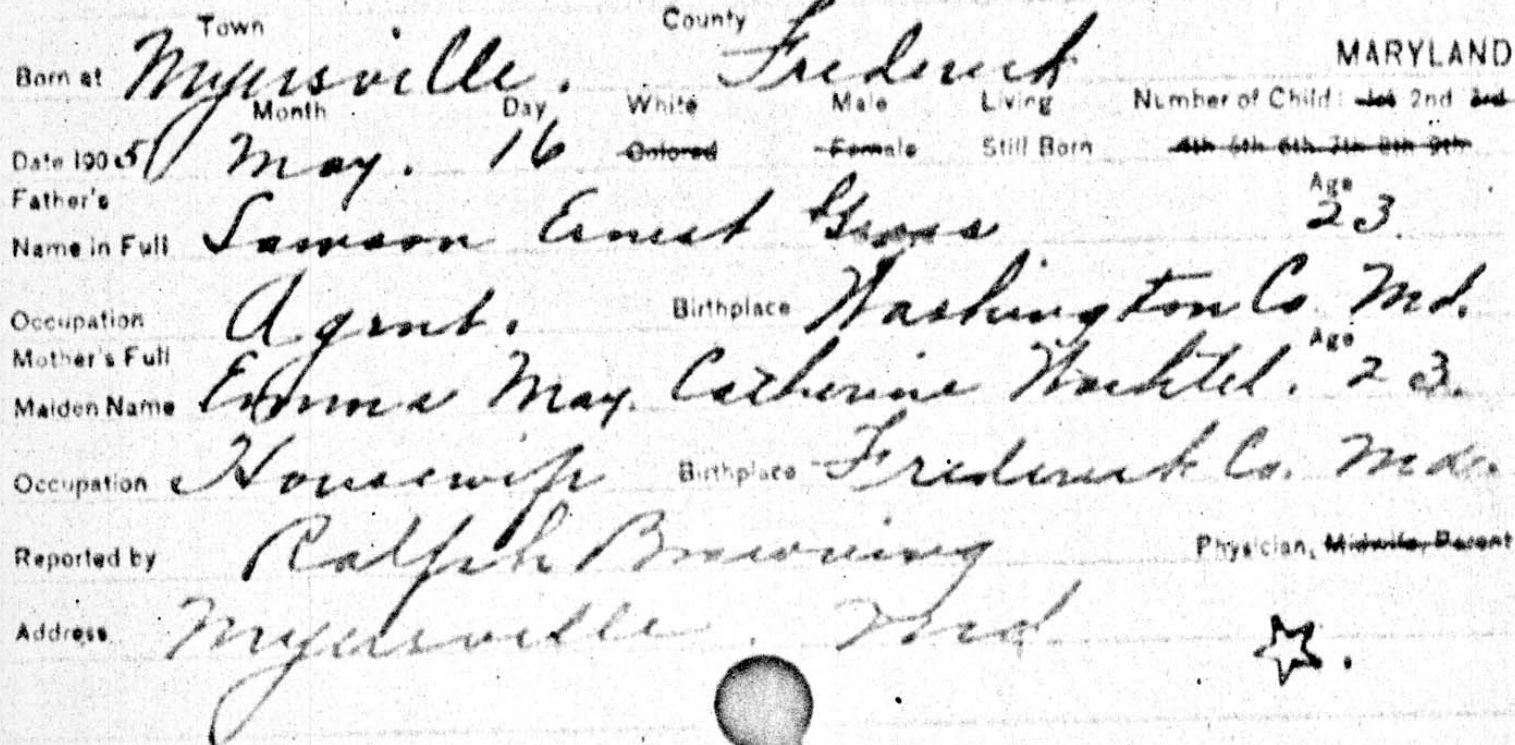 Town County
Born at Myersville. Frederick MARYLAND
Month Day White Male Living Number of Child: 1st 2nd 3rd
Date 1905 May. 16 Colored Female Still Born 4th 5th 6th 7th 8th 9th
Father's Age
Name in Full Lawson Ernest Gross 23.
Occupation Agent. Birthplace Washington Co. Md.
Mother's Full Age
Maiden Name Emma May. Catherine Wachtel. 23.
Occupation Housewife Birthplace Frederick Co. Md.
Reported by Ralph Browning Physician, Midwife, Parent
Address Myersville. Md